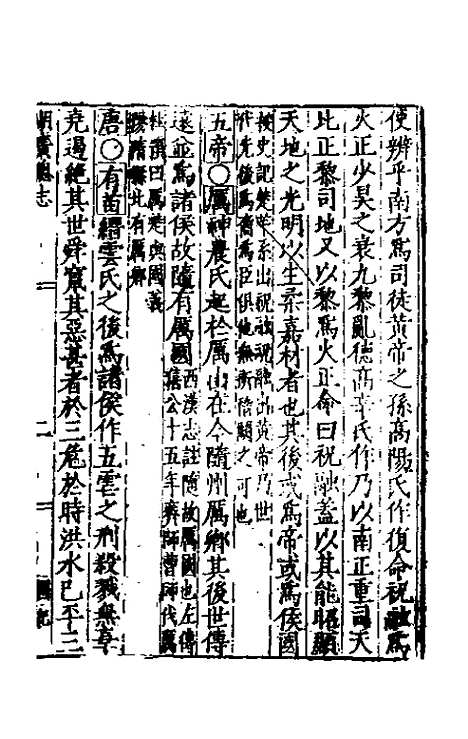 使辨乎南方爲司徒黃帝之孫高陽氏作復命祝融爲
火正少昊之衰九黎亂德高辛氏作乃以南正重司天
比正黎司地又以黎爲火正命曰祝融蓋以其能昭顯
天地之光明以生柔嘉材者也其後或爲帝或爲侯國
按史記楚世系出祝融祝融出黃帝乃世
五帝〇厲神農氏起於厲山在今隨州厲鄉其後世傳
遠並爲諸侯故隨有厲國西漢志註隨故厲國也左傳
僖公十五年齊師曹師伐厲
唐〇有苗縉雲氏之後爲諸侯作五虐之刑殺戮無辜
堯遏絕其世舜竄其惡甚者於三危於時洪水已平三
湖廣總志
二